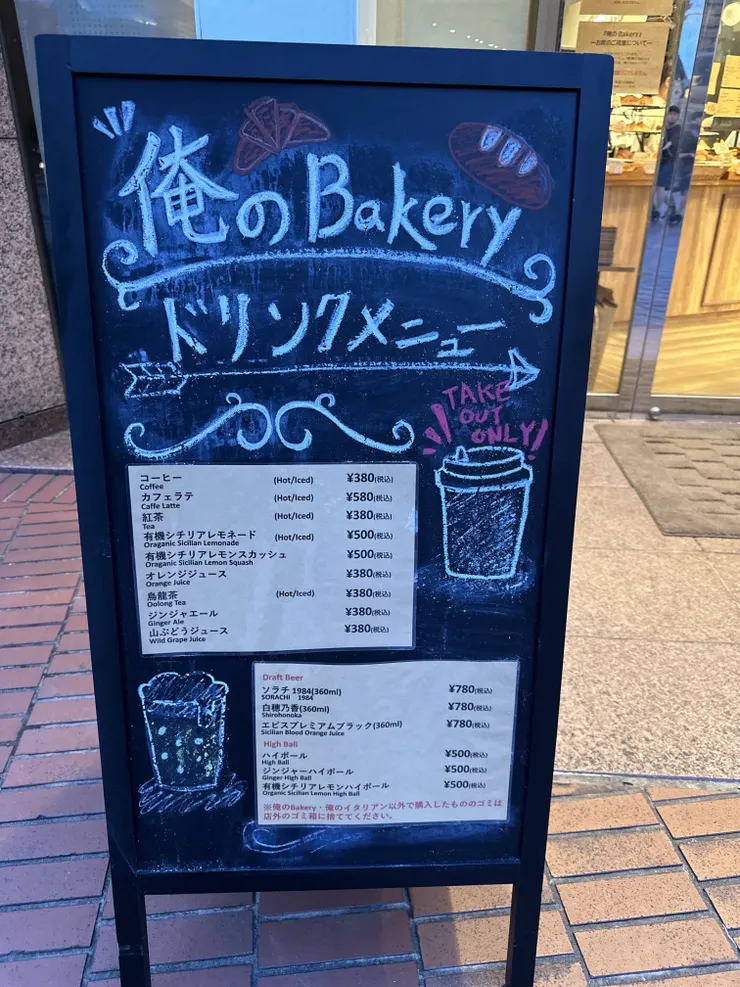 俺のBakery
ドリンクメニュー
TAKE
OUT
ONLY!
コーヒー (Hot/Iced) ¥380(税込)
Coffee
カフェラテ (Hot/Iced) ¥580(税込)
Caffe Latte
紅茶 (Hot/Iced) ¥380(税込)
Tea
有機シチリアレモネード (Hot/Iced) ¥500(税込)
Oraganic Sicilian Lemonade
有機シチリアレモンスカッシュ ¥500(税込)
Oraganic Sicilian Lemon Squash
オレンジジュース ¥380(税込)
Orange Juice
烏龍茶 (Hot/Iced) ¥380(税込)
Oolong Tea
ジンジャエール ¥380(税込)
Ginger Ale
山ぶどうジュース ¥380(税込)
Wild Grape Juice
Draft Beer
ソラチ 1984(360ml) ¥780(税込)
SORACHI 1984
白穂乃香(360ml) ¥780(税込)
Shirohonoka
エビスプレミアムブラック(360ml) ¥780(税込)
Sicilian Blood Orange Juice
High Ball
ハイボール ¥500(税込)
High Ball
ジンジャーハイボール ¥500(税込)
Ginger High Ball
有機シチリアレモンハイボール ¥500(税込)
Organic Sicilian Lemon High Ball
※俺のBakery・俺のイタリアン以外で購入したもののゴミは
店外のゴミ箱に捨ててください。
『俺のBakery』